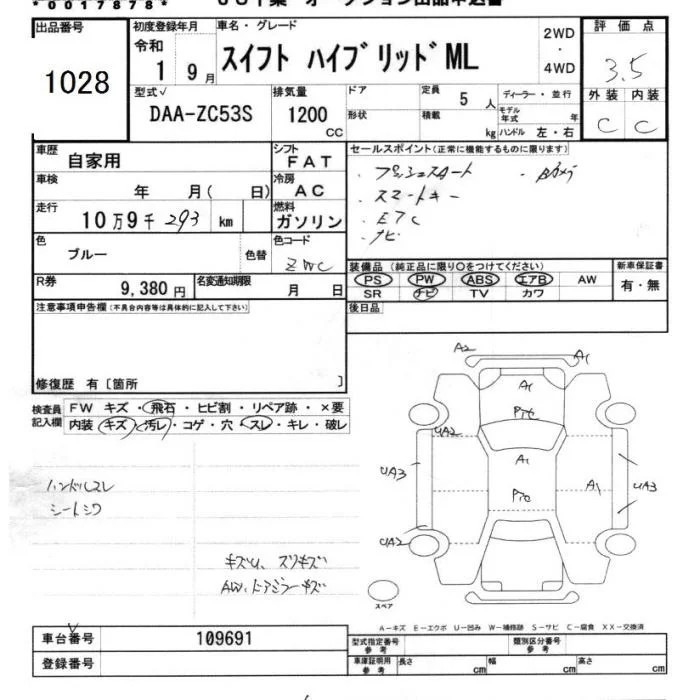 *0017878*
出品番号
1028
初度登録年月
令和
1 9月
車名・グレード
スイフト ハイブリッドML
2WD
・
4WD
評価点
3.5
型式
DAA-ZC53S
排気量
1200
CC
ドア
形状
定員
5 人
積載
kg
ディーラー・並行
モデル年式 年
ハンドル 左・右
外装 内装
C C
車歴
自家用
シフト
FAT
車検
年 月( 日)
冷房
AC
走行
10万9千293 km
燃料
ガソリン
色
ブルー
色替
色コード
ZWC
R券
9,380円
名変通知期限
月 日
セールスポイント(正常に機能するものに限ります)
・プッシュスタート
・スマートキー
・ETC
・ナビ
装備品(純正品に限り〇をつけてください)
PS PW ABS エアB AW
SR ナビ TV カワ
新車保証書
有・無
後日品
注意事項申告欄(不具合内容等は具体的に記入して下さい)
修復歴 有〔箇所 〕
検査員記入欄
FW キズ・飛石・ヒビ割・リペア跡・×要
内装 キズ・汚レ・コゲ・穴・スレ・キレ・破レ
ハンドルスレ
シートシワ
キズU、スリキズ
AW、ドアミラーキズ
A2
A1
A1
UA2
A1
UA3
A1
UA3
UA2
スペア
A-キズ E-エクボ U-凹み W-補修跡 S-サビ C-腐食 XX-交換済
車台番号
109691
登録番号
型式指定番号
参考
類別区分番号
参考
車庫証明用
参考
長さ cm
幅 cm
高さ cm